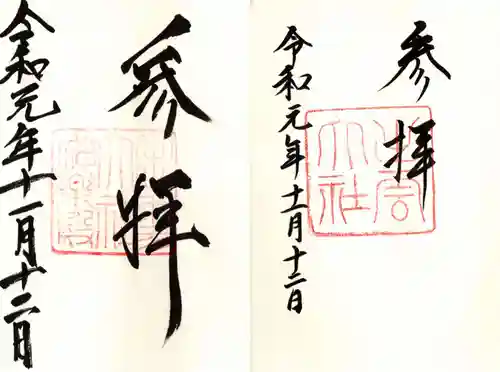 参拝
出雲
大社
令和元年十一月十二日
参拝
令和元年十一月十二日